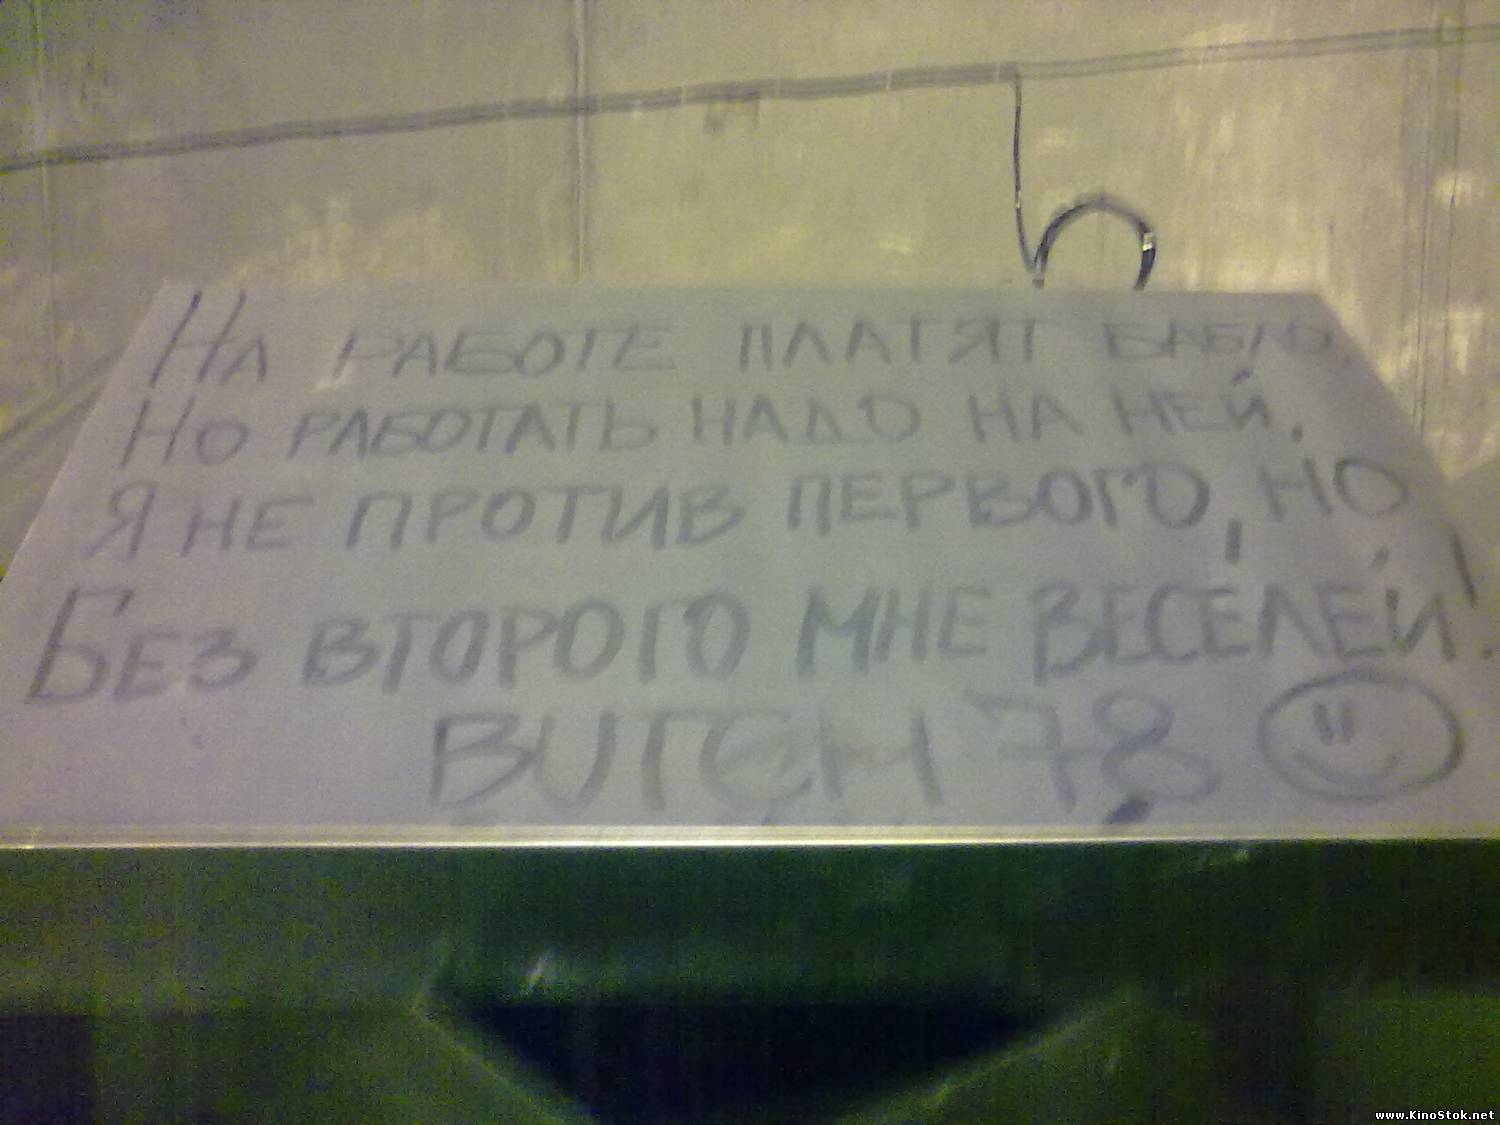 На работе платят бабло,
Но работать надо на ней.
Я не против первого, но
Без второго мне веселей!
BUTCH 78
www.KinoStok.net